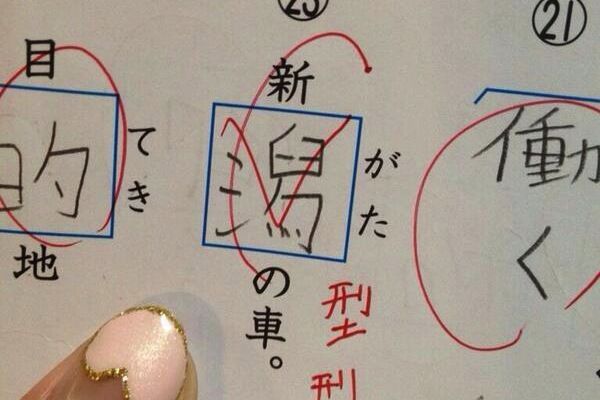 ㉑
働く
新潟の車。
がた
型
型
目的地
てき